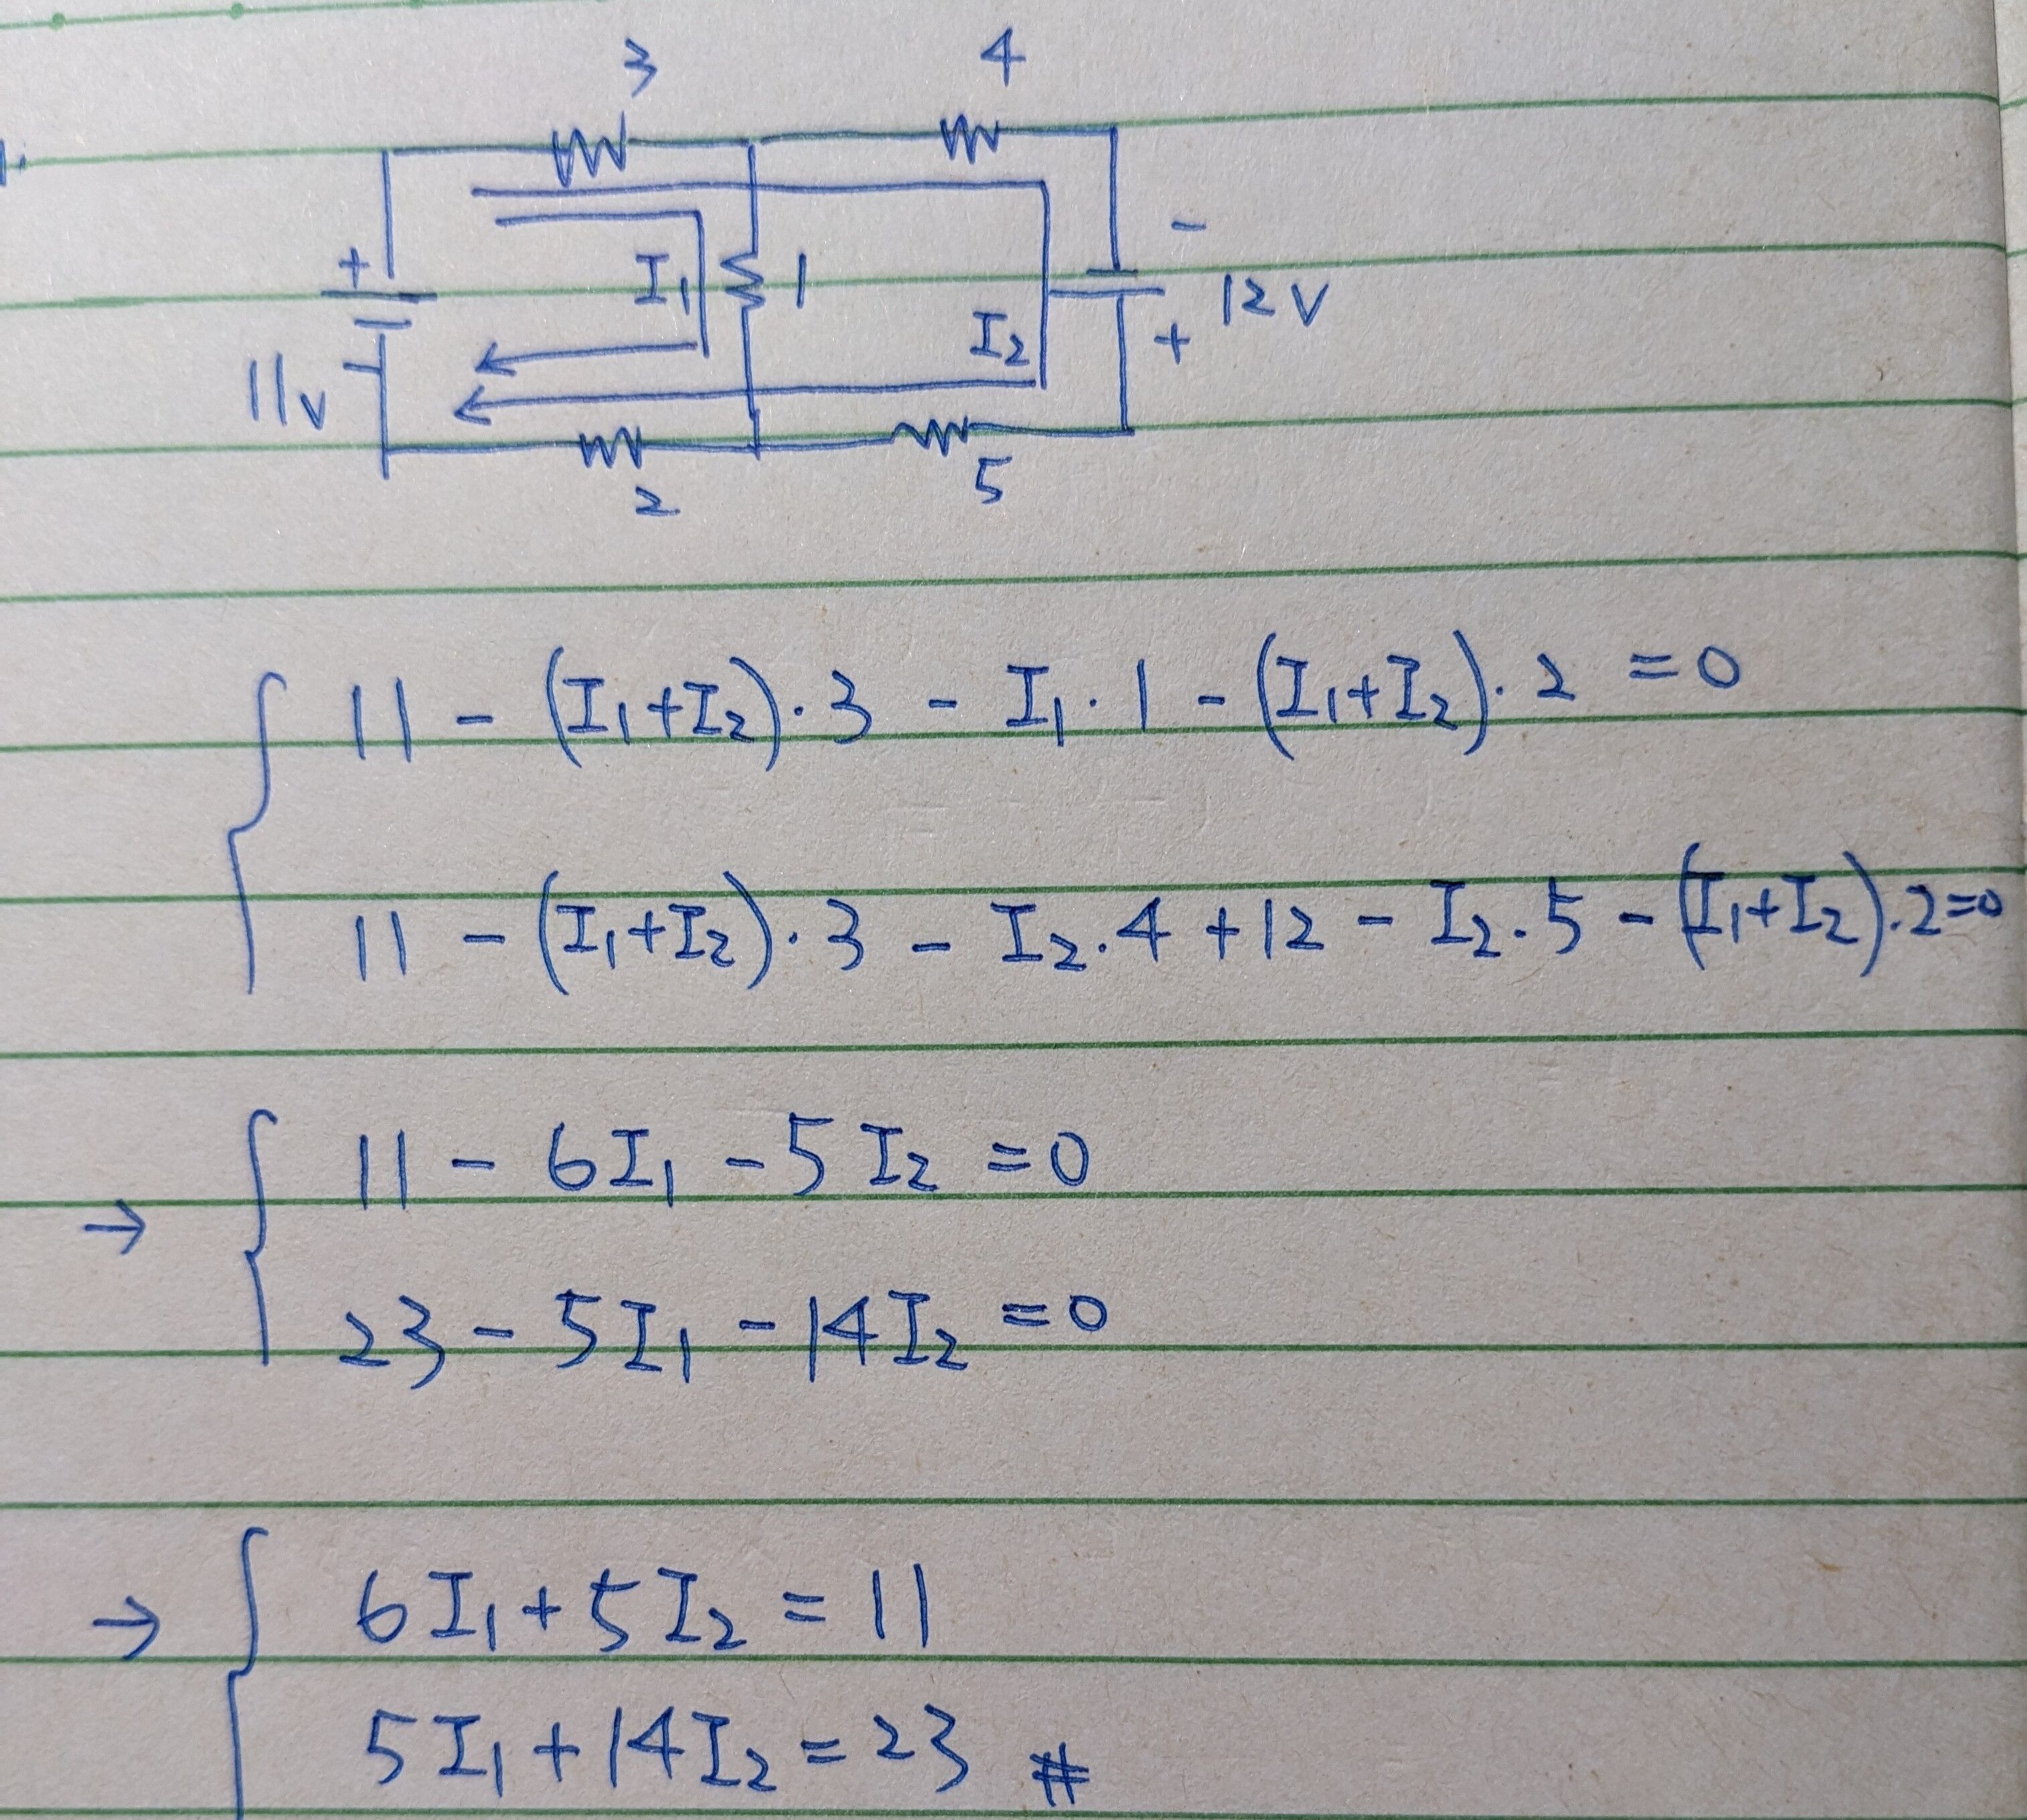 1.
3 4
+ I₁ 1 I₂ - 12V +
11V -
2 5
11 - (I₁+I₂)·3 - I₁·1 - (I₁+I₂)·2 = 0
11 - (I₁+I₂)·3 - I₂·4 + 12 - I₂·5 - (I₁+I₂)·2=0
→ 11 - 6I₁ - 5I₂ = 0
23 - 5I₁ - 14I₂ = 0
→ 6I₁ + 5I₂ = 11
5I₁ + 14I₂ = 23 #